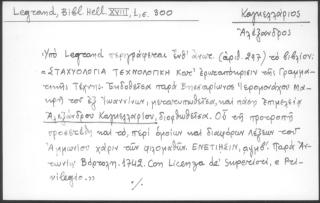 Legrand, Bibl Hell XVIII, I, σ. 300
Καγκελλάριος
Ἀλέξανδρος
Ὑπὸ Legrand περιγράφεται ἐνθ' ἀνωτ. (ἀριθ. 287) τὸ βιβλίον:
«ΣΤΑΧΥΟΛΟΓΙΑ ΤΕΧΝΟΛΟΓΙΚΗ Κατ' ἐρωταπόκρισιν τῆς Γραμμα-
τικῆς Τέχνης. Ἐκδοθεῖσα παρὰ Ἱερομονάχου Μα-
τοῦ ἐξ Ἰωαννίνων, μετατυπωθεῖσα, καὶ πάσῃ ἐπιμελείᾳ
Ἀλεξάνδρου Καγκελλαρίου, διορθωθεῖσα. Οὗ τῇ προτροπῇ
προσετέθη καὶ τὸ, περὶ ὁμοίων καὶ διαφόρων λέξεων τοῦ
Ἀμμωνίου χάριν τῶν φιλομαθῶν. ΕΝΕΤΙΗΣΙΝ, αψμβ'. Παρὰ Ἀν-
τωνίῳ Βόρτολι. 1742. Con Licenza de' Superiori, e Pri-
vilegio.»